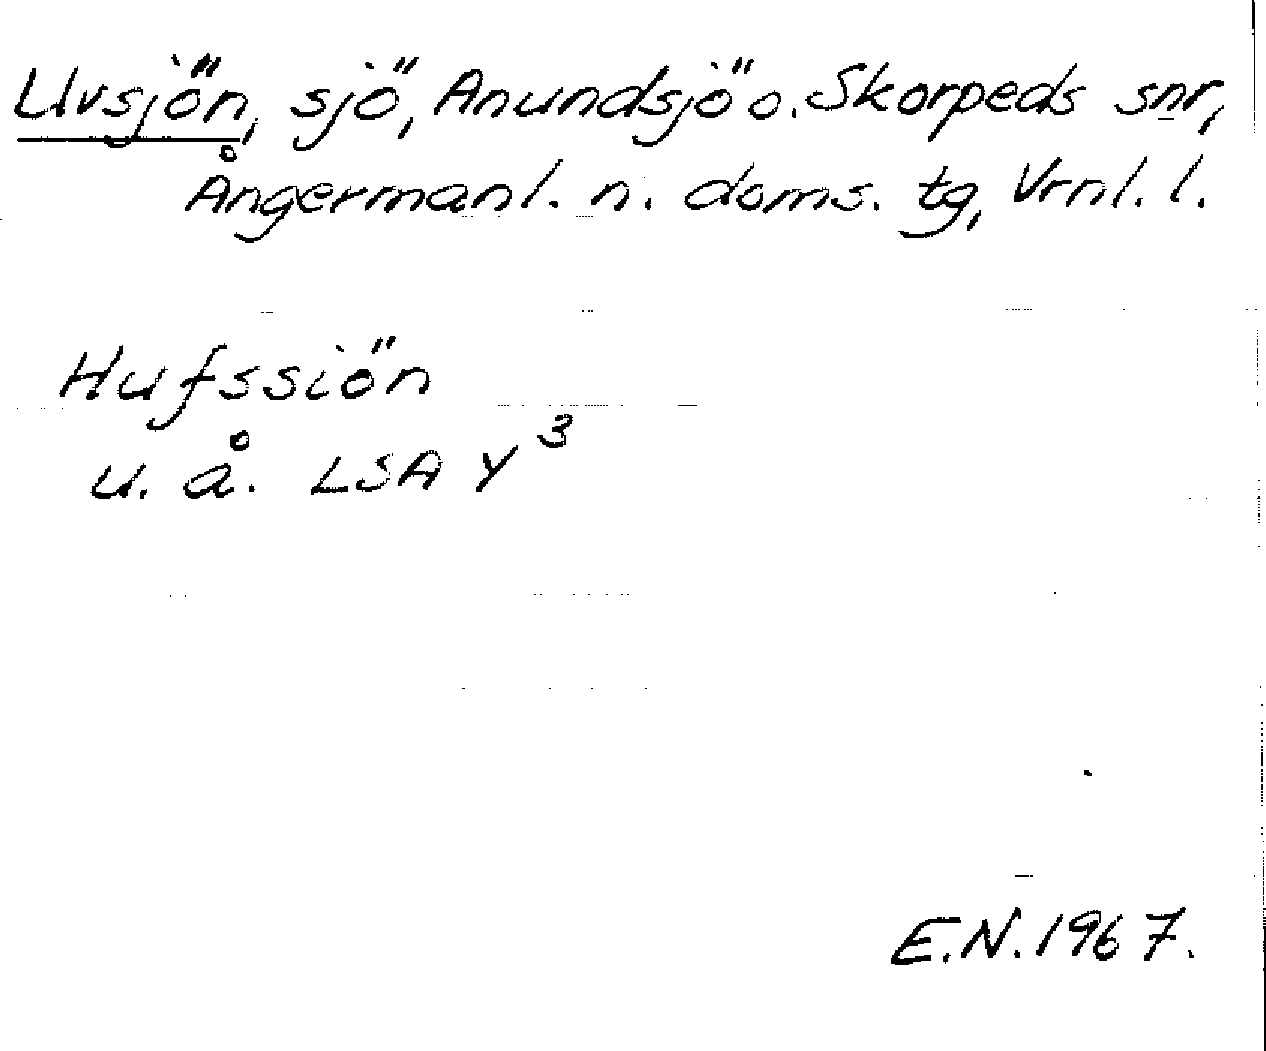 Uvsjön, sjö, Anundsjö o. Skorpeds snr,
Ångermanl. n. doms. tg, Vrnl. l.
Hufssiön
u. å. LSA Y3
E.N. 1967.